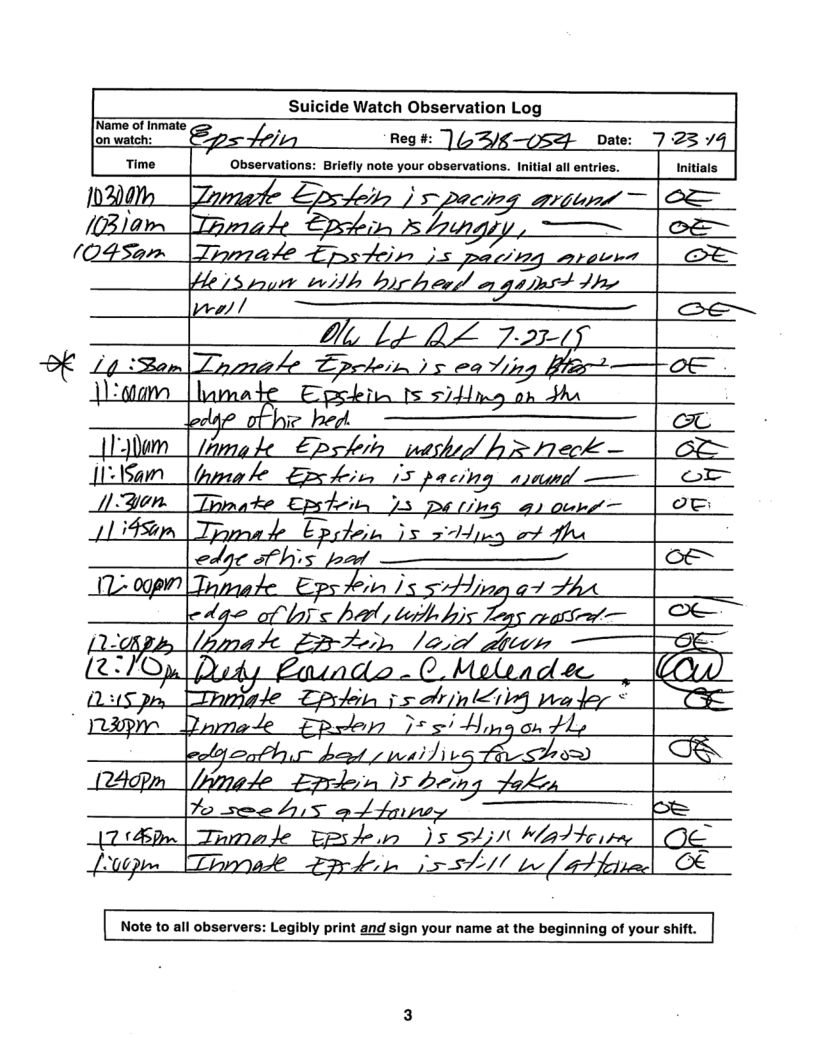 Suicide Watch Observation Log
Name of Inmate on watch: Epstein Reg #: 76318-054 Date: 7-23-19
Time Observations: Briefly note your observations. Initial all entries. Initials
1030am Inmate Epstein is pacing around — OE
1031am Inmate Epstein is hungry, — OE
1045am Inmate Epstein is pacing around OE
He is now with his head against the
wall — OE
7-23-19
10:58am Inmate Epstein is eating — OE
11:00am Inmate Epstein is sitting on the
edge of his bed. — OE
11:10am Inmate Epstein washed his neck — OE
11:15am Inmate Epstein is pacing around — OE
11:30am Inmate Epstein is pacing around — OE
11:45am Inmate Epstein is sitting at the
edge of his bed — OE
12:00pm Inmate Epstein is sitting at the
edge of his bed, with his legs crossed — OE
12:08pm Inmate Epstein laid down — OE
12:10pm Duty Rounds - C. Melendec
12:15pm Inmate Epstein is drinking water OE
1230pm Inmate Epstein is sitting on the
edge of his bed, waiting for OE
1240pm Inmate Epstein is being taken
to see his attorney — OE
12:45pm Inmate Epstein is still w/attorney OE
1:00pm Inmate Epstein is still w/attorney OE
Note to all observers: Legibly print and sign your name at the beginning of your shift.
3